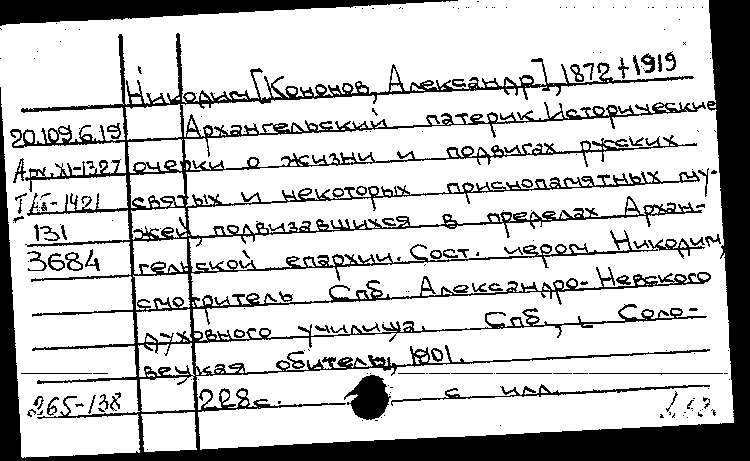 Никодим [Кононов, Александр], 1872 †1919
20.109.6.19 Архангельский патерик. Исторические
Арх.XI-1327 очерки о жизни и подвигах русских
святых и некоторых приснопамятных му-
131 жей, подвизавшихся в пределах Архан-
3684 гельской епархии. Сост. иером. Никодим,
смотритель Спб. Александро-Невского
духовного училища. Спб., Соло-
вецкая обитель, 1901.
265-138 228 с. с илл.